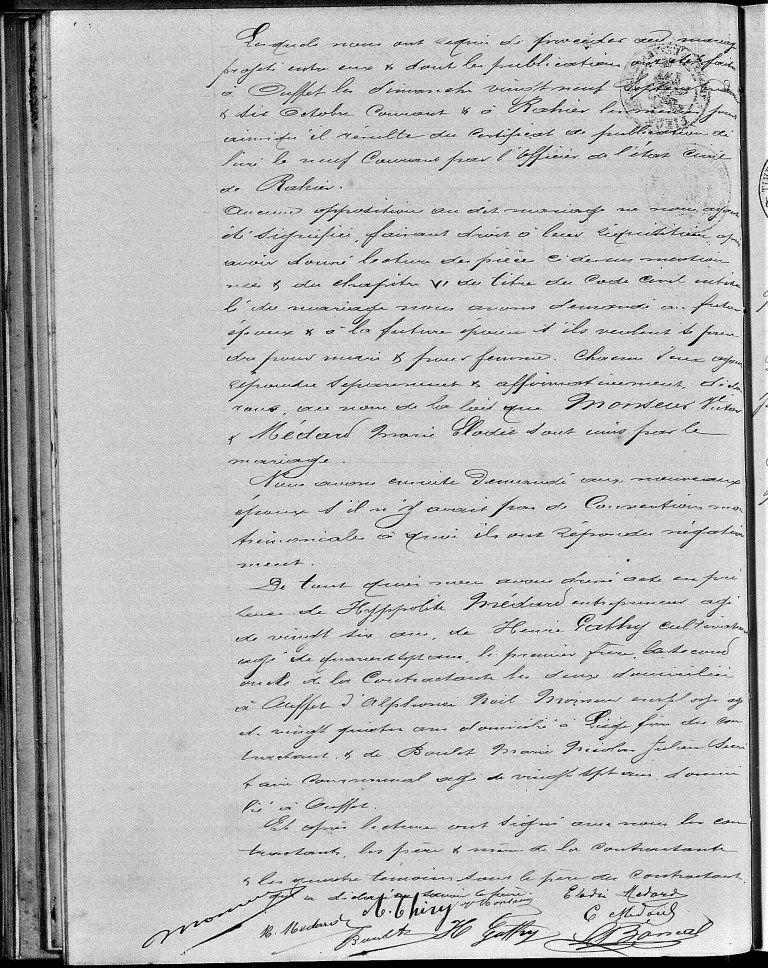 Lesquels nous ont requis de procéder au mariage
projeté entre eux & dont les publications ont été faites
à Ouffet les dimanche vingt neuf Septembre
& six Octobre Courant & à Rahier les mêmes jours
ainsi qu'il résulte du Certificat de publication dé
livré le neuf Courant par l'officier de l'état civil
de Rahier.
Aucune opposition au dit mariage ne nous ayant
été signifiée, faisant droit à leur réquisition, après
avoir donné lecture des pièces ci dessus mention
nées & du chapitre VI du titre du Code Civil intitu
lé du mariage nous avons demandé au futur
époux & à la future épouse s'ils veulent se pren
dre pour mari & pour femme. Chacun d'eux ayant
répondu séparément & affirmativement, décla
rons, au nom de la loi que Monseur Victor
& Médard Marie Elodie sont unis par le
mariage.
Nous avons ensuite demandé aux nouveaux
époux s'il n'y avait pas de Conventions ma
trimoniales à quoi ils ont répondu négative
ment.
De tout quoi nous avons dressé acte en pré
sence de Hyppolite Médard entrepreneur agé
de vingt six ans, de Henri Gathy cultivateur
agé de quarante sept ans, le premier frère, le second
oncle de la Contractante les deux domiciliés
à Ouffet d'Alphonse Noël Monseur employé agé
de vingt quatre ans domicilié à Liége frère du con
tractant & de Boulet Marie Nicolas Julien Secré
taire Communal agé de vingt sept ans domici
lié à Ouffet.
Et après lecture ont signé avec nous les con
tractants, les père & mère de la contractante
& les quatre témoins sauf le père du Contractant
qui a déclaré ne savoir le faire.
Monseur A. Thiry Elodie Medard
H. Medard Boulet H Gathy